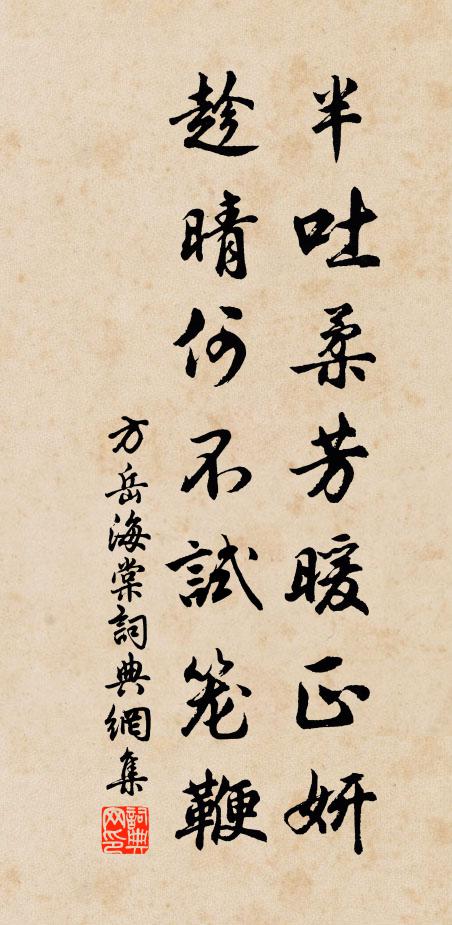 半吐柔芳暖正妍
趁晴何不試笼鞭
方岳海棠詞典網集
詞典网印